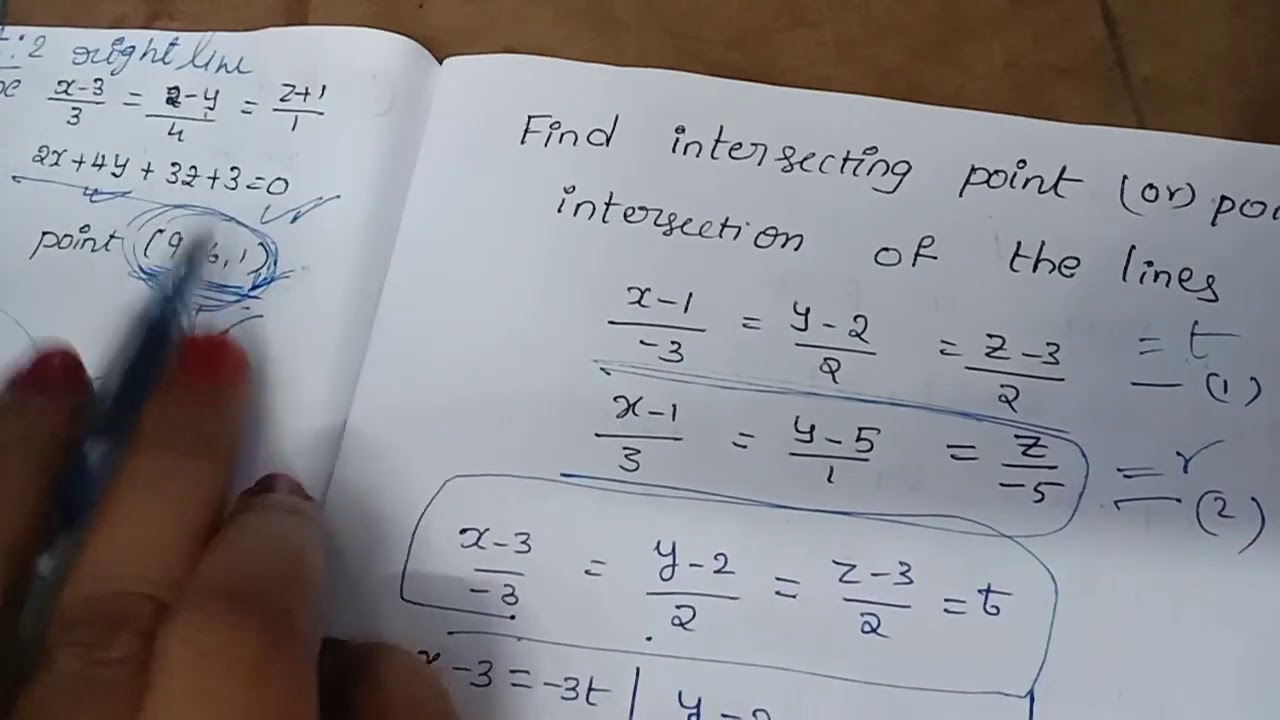 2 right line
x-3/3 = 2-y/4 = z+1/1
2x+4y+3z+3=0
point (9, 6, 1)
Find intersecting point (or)
intersection of the lines
x-1/-3 = y-2/2 = z-3/2 = t —(1)
x-1/3 = y-5/1 = z/-5 = r —(2)
x-3/-3 = y-2/2 = z-3/2 = t
x-3=-3t | y-2